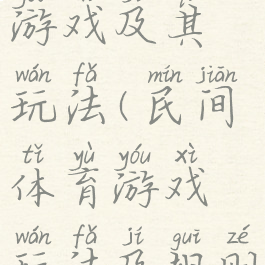 游戏及其
wán fǎ mín jiān
玩法(民间
tǐ yù yóu xì
体育游戏
wán fǎ jí guī zé
玩法及规则